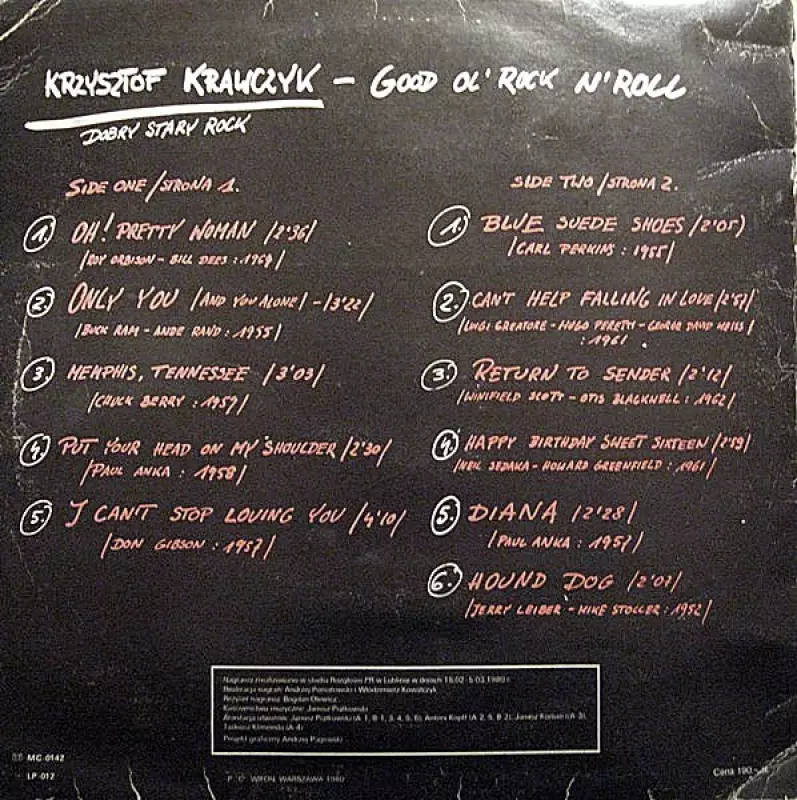 KRZYSZTOF KRAWCZYK – GOOD OL' ROCK N' ROLL
DOBRY STARY ROCK
SIDE ONE /STRONA 1.
1. OH! PRETTY WOMAN /2'36/
/ROY ORBISON – BILL DEES : 1964/
2. ONLY YOU /AND YOU ALONE/ – /3'22/
/BUCK RAM – ANDE RAND : 1955/
3. MEMPHIS, TENNESSEE /3'03/
/CHUCK BERRY : 1959/
4. PUT YOUR HEAD ON MY SHOULDER /2'30/
/PAUL ANKA : 1958/
5. I CAN'T STOP LOVING YOU /4'10/
/DON GIBSON : 1957/
SIDE TWO /STRONA 2.
1. BLUE SUEDE SHOES /2'05/
/CARL PERKINS : 1955/
2. CAN'T HELP FALLING IN LOVE /2'57/
/LUIGI CREATORE – HUGO PERETTY – GEORGE DAVID WEISS/
: 1961
3. RETURN TO SENDER /2'12/
/WINIFIELD SCOTT – OTIS BLACKNELL : 1962/
4. HAPPY BIRTHDAY SWEET SIXTEEN /2'59/
/NEIL SEDAKA – HOWARD GREENFIELD : 1961/
5. DIANA /2'28/
/PAUL ANKA : 1957/
6. HOUND DOG /2'07/
/JERRY LEIBER – MIKE STOLLER : 1952/
Nagrania zrealizowano w studio Rozgłośni PR w Lublinie w dniach 18.02 - 5.03.1980 r.
Realizacja nagrań: Andrzej Poniatowski i Włodzimierz Kowalczyk
Reżyser nagrania: Bogdan Olewicz
Kierownictwo muzyczne: Janusz Piątkowski
Aranżacja utworów: Janusz Piątkowski (A 1, B 1, 3, 4, 5, 6), Antoni Kopff (A 2, 5, B 2), Janusz (A 3),
Tadeusz Klimonda (A 4)
Projekt graficzny Andrzej Pągowski
MC-0142
LP-012
WARSZAWA 1980
Cena 190,-